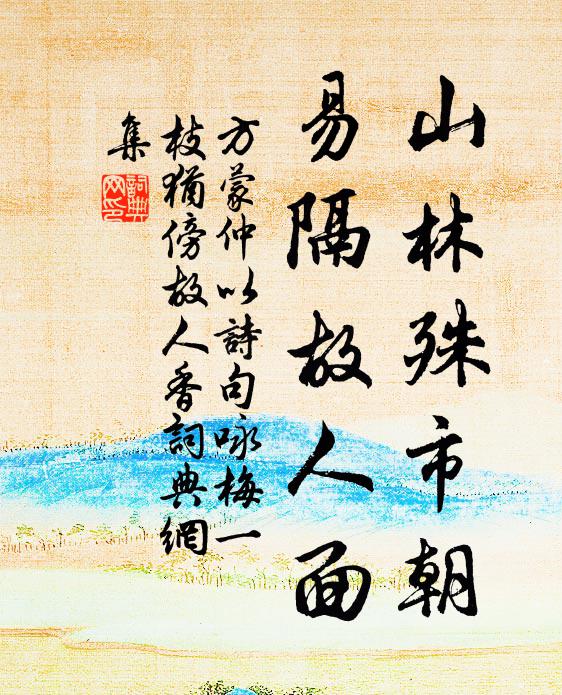 山林殊市朝
易隔故人面
方蒙仲以詩句咏梅一
枝猶傍故人香詞典網
集
詞典
网印